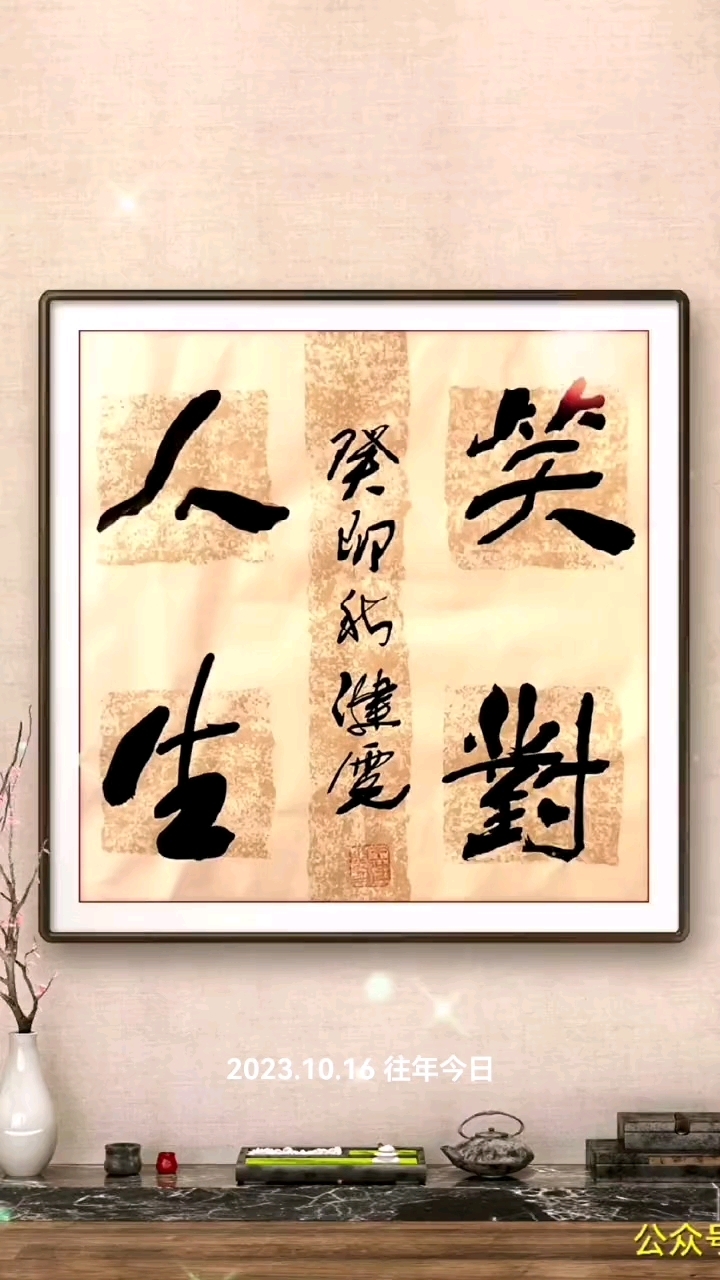 笑對
人生
癸卯秋健雲
2023.10.16 往年今日
公众号